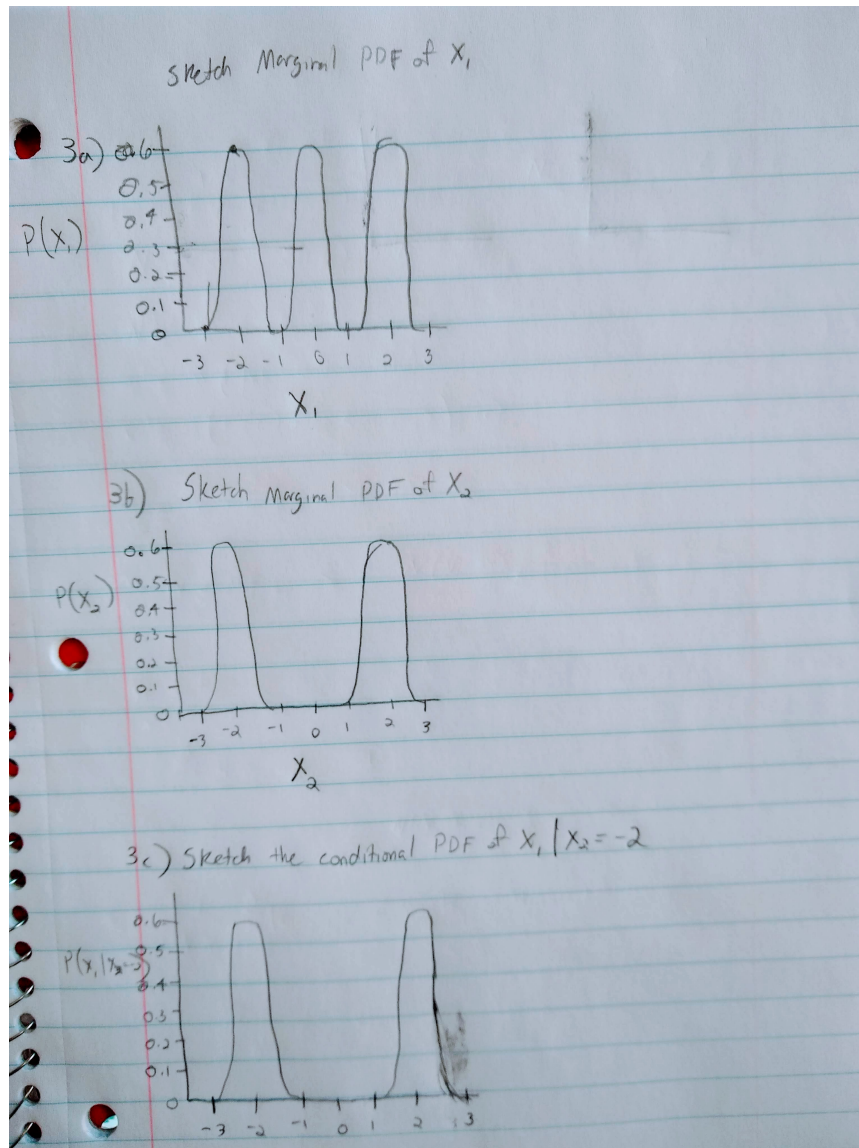 Sketch Marginal PDF of X₁
3a) 0.6
0.5
0.4
P(X₁)
0.3
0.2
0.1
0
-3 -2 -1 0 1 2 3
X₁
3b) Sketch Marginal PDF of X₂
0.6
0.5
P(X₂)
0.4
0.3
0.2
0.1
0
-3 -2 -1 0 1 2 3
X₂
3c) Sketch the conditional PDF of X₁ | X₂ = -2
0.6
0.5
0.4
0.3
0.2
0.1
0
-3 -2 -1 0 1 2 3